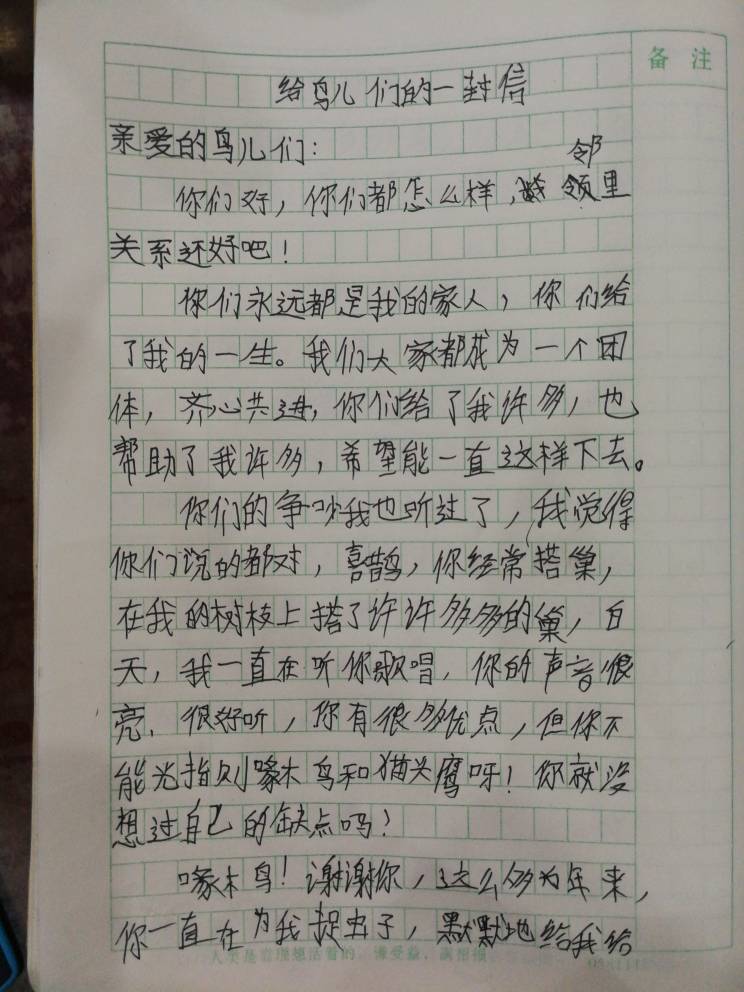 备 注
给鸟儿们的一封信
亲爱的鸟儿们：
邻
你们好，你们都怎么样，领里
关系还好吧！
你们永远都是我的家人，你们给
了我的一生。我们大家都成为一个团
体，齐心共进，你们给了我许多，也
帮助了我许多，希望能一直这样下去。
你们的争吵我也听过了，我觉得
你们说的都对，喜鹊，你经常搭巢，
在我的树枝上搭了许许多多的巢，白
天，我一直在听你歌唱，你的声音很
亮、很好听，你有很多优点，但你不
能光指则啄木鸟和猫头鹰呀！你就没
想过自己的缺点吗？
啄木鸟！谢谢你，这么多为年来，
你一直在为我捉虫子，默默地给我给